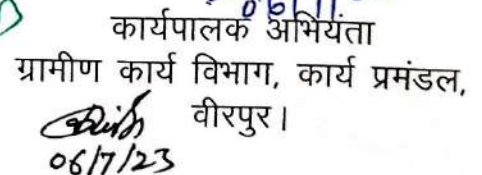 कार्यपालक अभियंता
ग्रामीण कार्य विभाग, कार्य प्रमंडल,
वीरपुर।
06/7/23